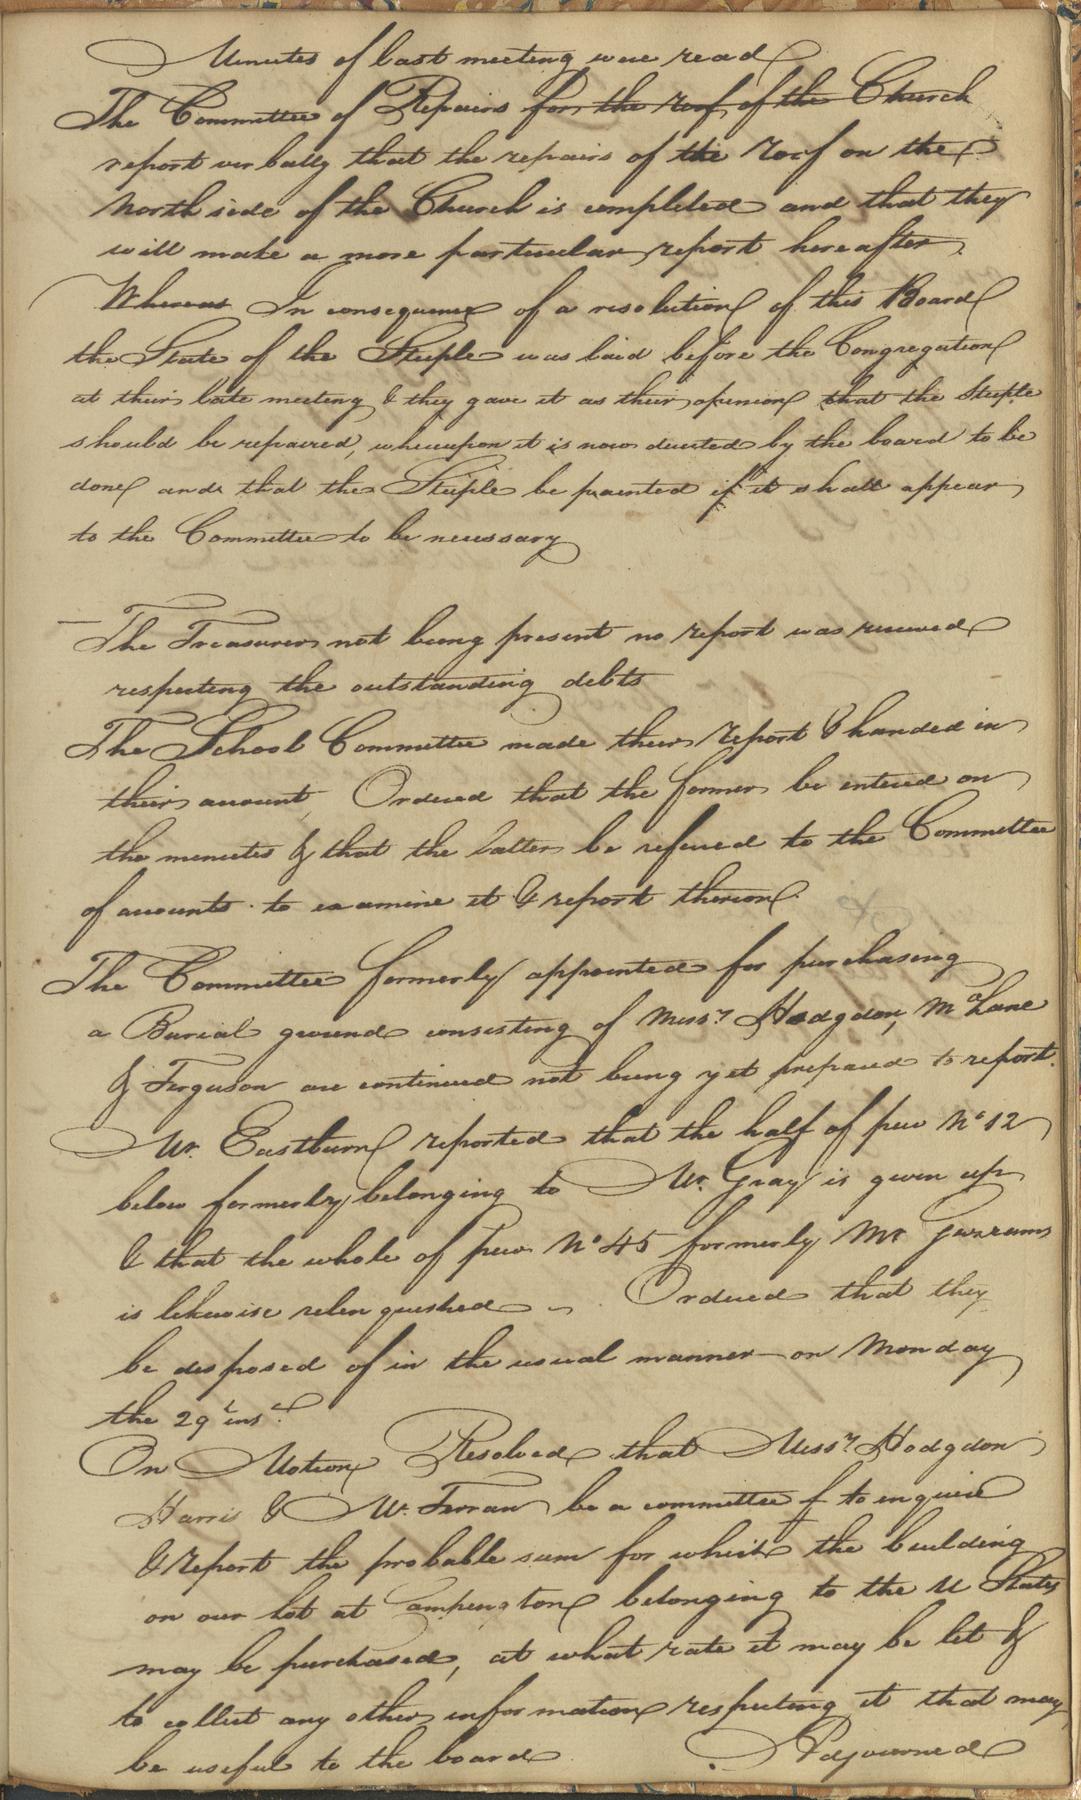 Minutes of last meeting were read
The Committee of Repairs for the roof of the Church
report verbally that the repairs of the roof on the
North side of the Church is completed and that they
will make a more particular report hereafter
Whereas In consequence of a resolution of this Board
the State of the Steeple was laid before the Congregation
at their late meeting & they gave it as their opinion that the Steeple
should be repaired, whereupon it is now directed by the board to be
done and that the Steeple be painted if it shall appear
to the Committee to be necessary
The Treasurer not being present no report was received
respecting the outstanding debts
The School Committee made their report & handed in
their account Ordered that the former be entered on
the minutes & that the latter be refered to the Committee
of accounts to examine it & report thereon
The Committee formerly appointed for purchasing
a Burial ground consisting of Messrs Hodgdon, McLane
& Ferguson are continued not being yet prepared to report.
Mr. Eastburn reported that the half of pew No 12
below formerly belonging to Mr. Gray is given up
& that the whole of pew No 45 formerly Mr
is likewise relenquished Ordered that they
be desposed of in the usual manner on Monday
the 29t inst
On Motion Resolved that Messrs Hodgdon
Harris & Mr. Ferran be a committee to enquire
& report the probable sum for which the building
on our lot at belonging to the U States
may be purchased, at what rate it may be let &
to collect any other information respecting it that may
be useful to the board Adjourned